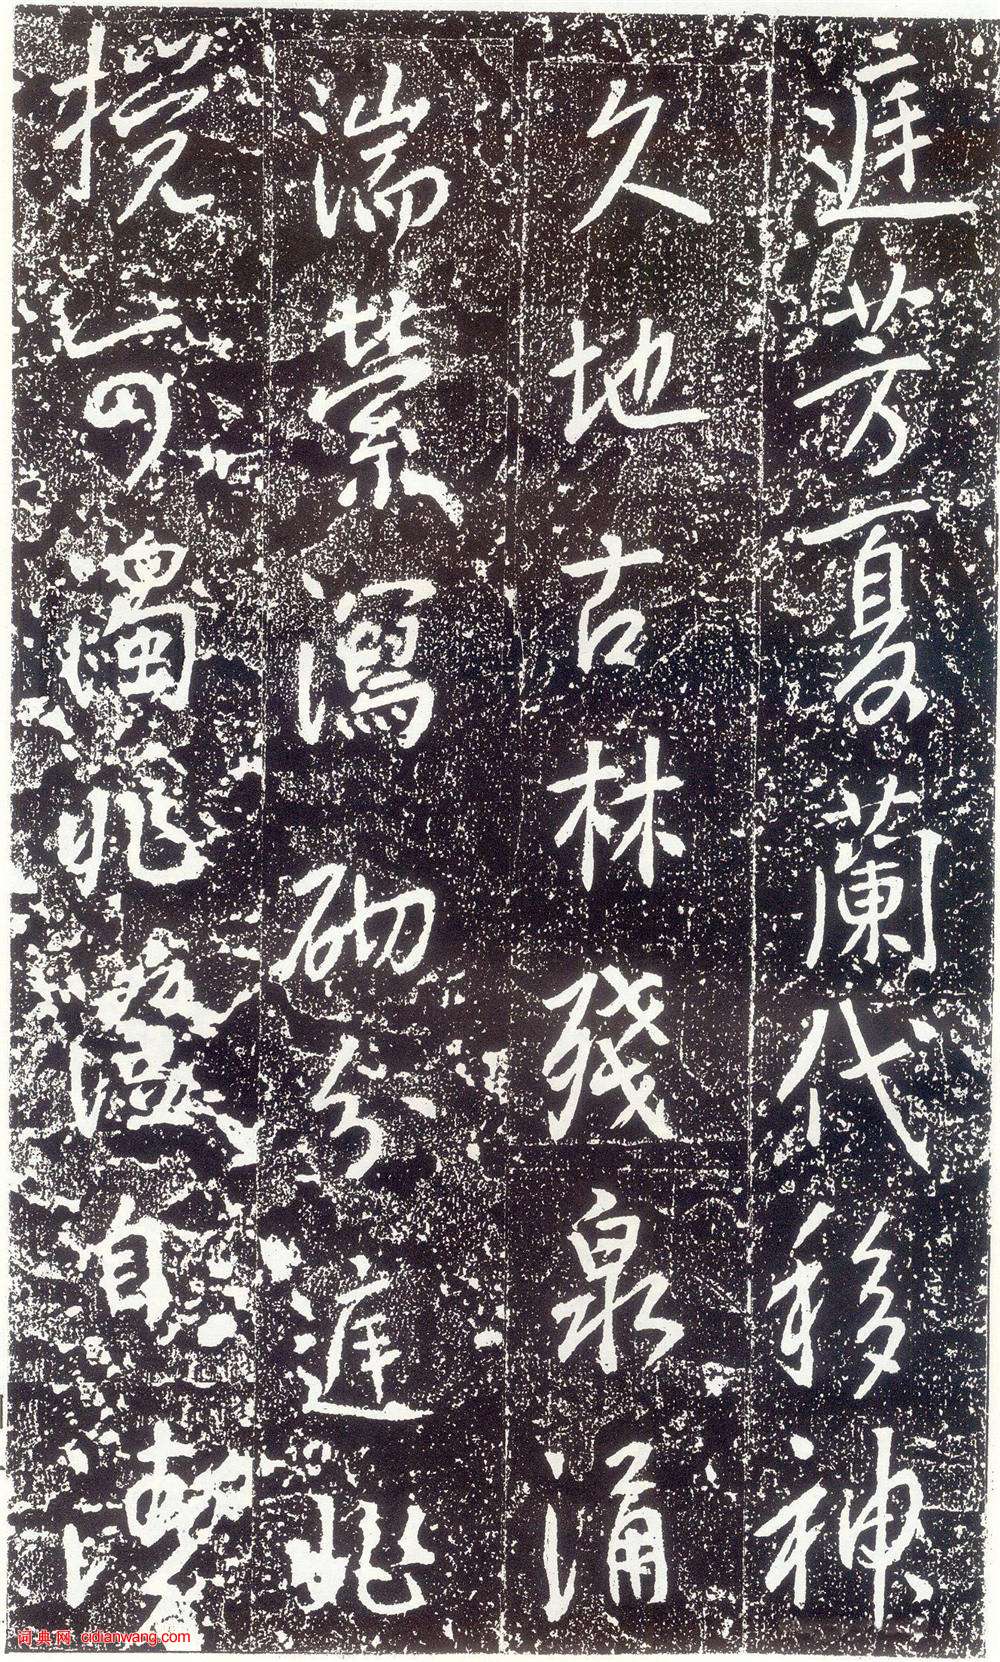 庭芳夏蘭代移神
久地古林殘泉涌
湍縈瀉砌分庭非
攪可濁非澄自清
词典网 cidianwang.com